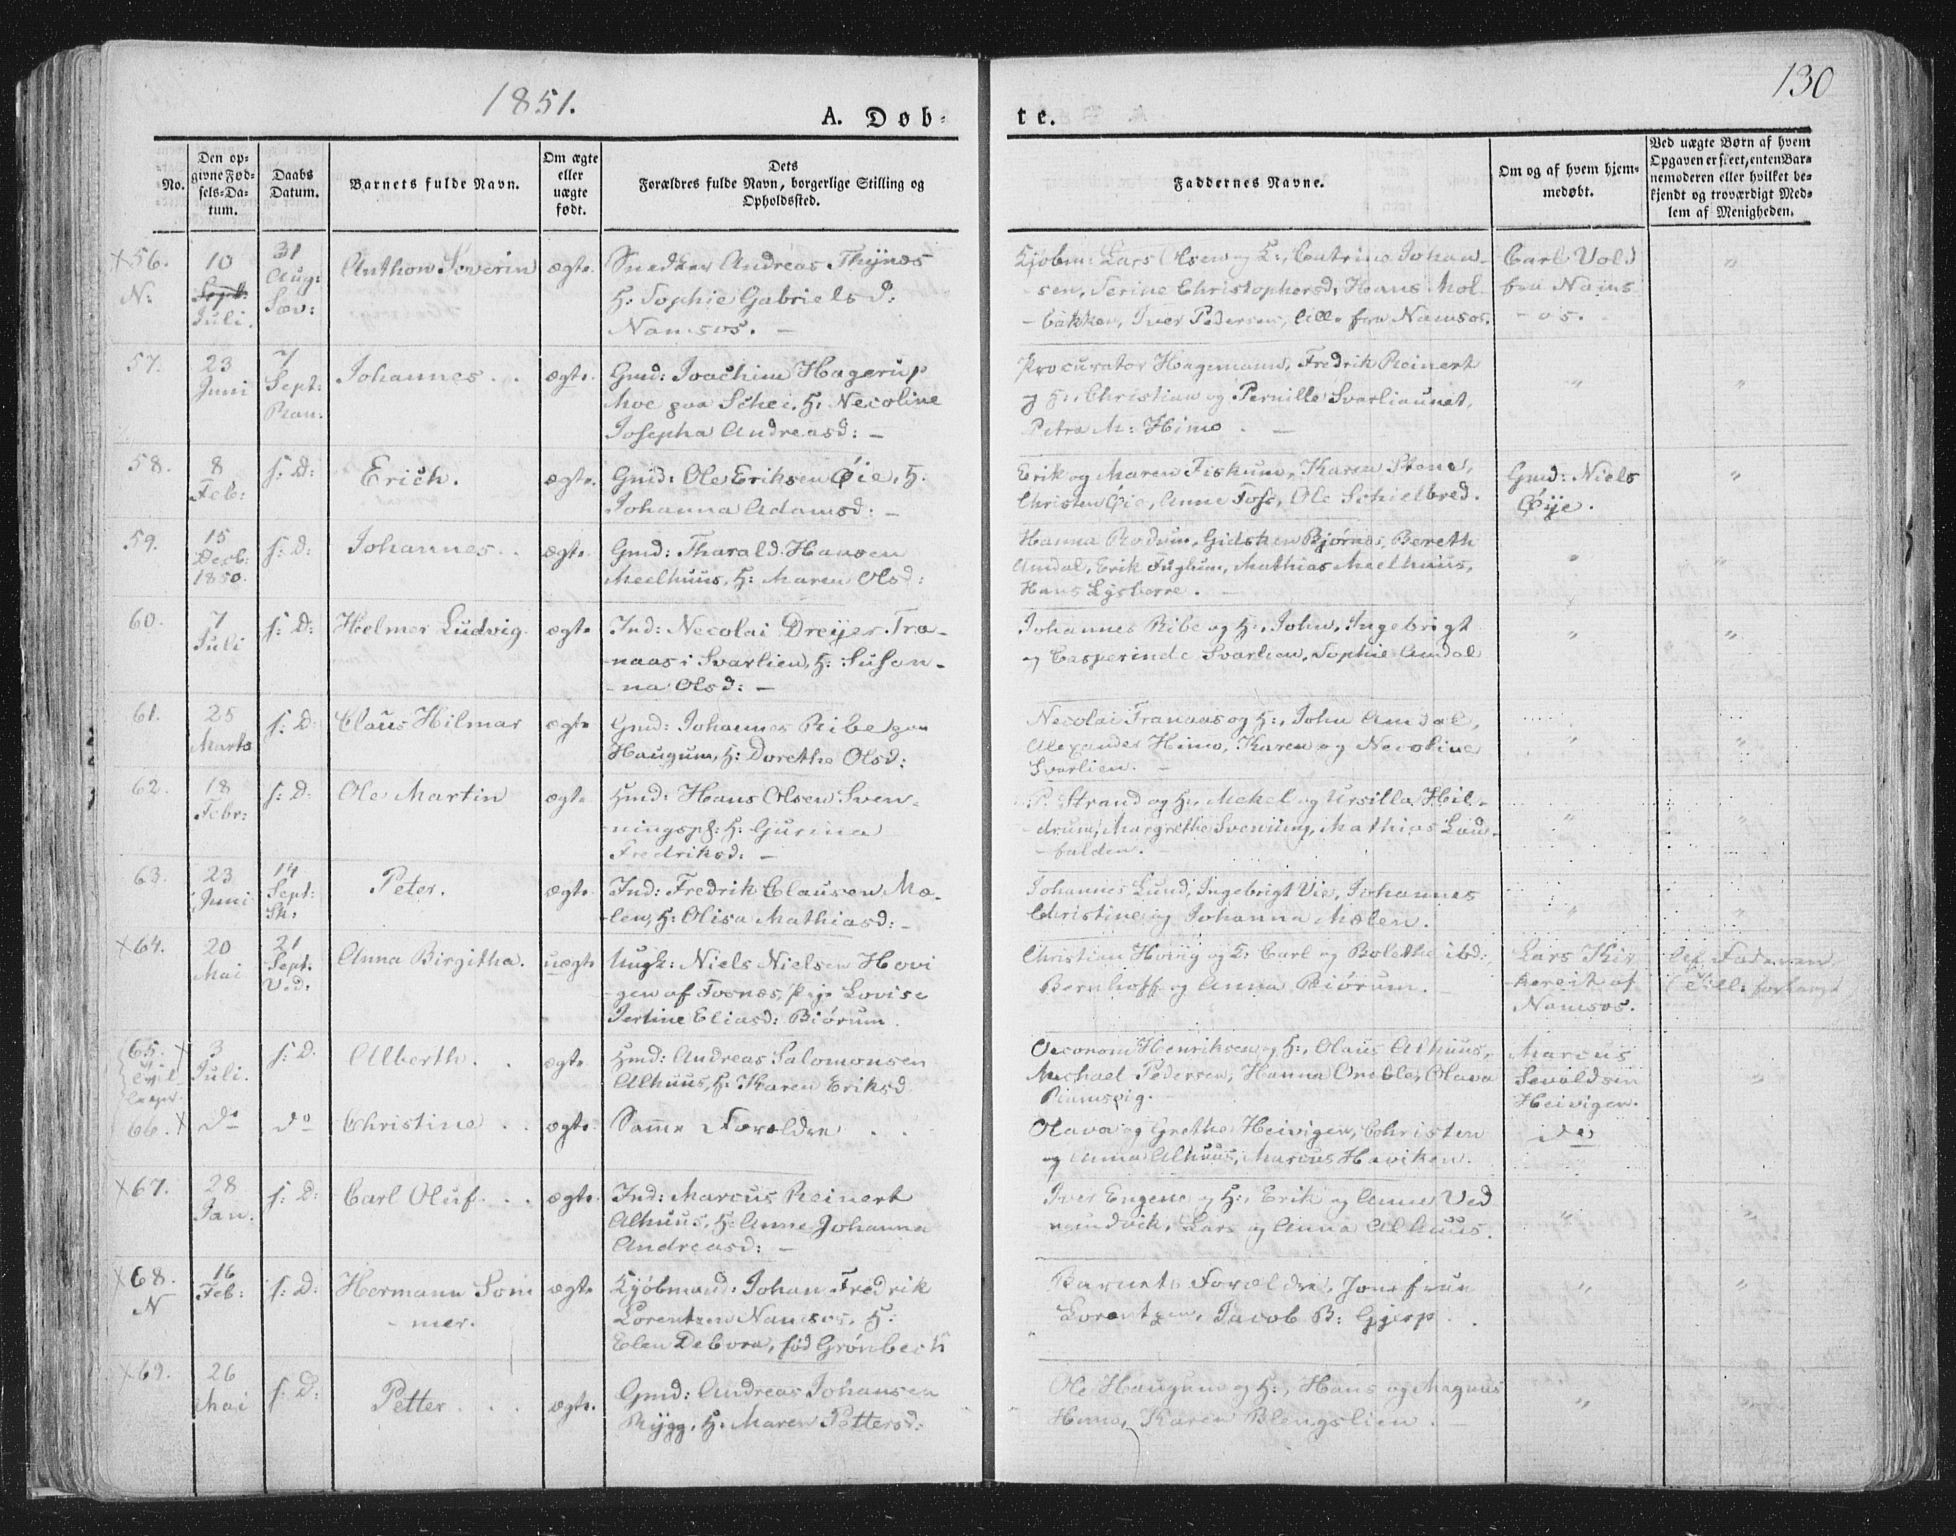 1851.
130
A. Døb-
te.
No.
Den op-
givne Fød-
sels-Da-
tum.
Daabs
Datum.
Barnets fulde Navn.
Om ægte
eller
uægte
født.
Dets
Forældres fulde Navn, borgerlige Stilling og
Opholdssted.
Faddernes Navne.
Om og af hvem hjem-
medøbt.
Ved uægte Børn af hvem
Opgaven er skeet, enten Bar-
nemoderen eller hvilket be-
kjendt og troværdigt Med-
lem af Menigheden.
×56.
N:
10
Sept:
Juli.
31
Aug:
Sæv:
Anthon Severin
ægte.
Snedker Andreas Thynæs
H: Sophie Gabrielsd:
Namsos. –
Kjøbm: Lars Olsen og H:, Catrine Johan-
sen, Serine Christophersd, Hans Mol-
bakken, Iver Pedersen, alle fra Namsos.
Carl Vold
fra Nams
-os.
"
57.
23
Juni
7
Sept:
Ran.
Johannes . .
ægte.
Gmd: Joachim Hagerup
Moe paa Schei, H: Necoline
Josepha Andreasd: –
Procurator Hagemann, Fredrik Reinert
og H:, Christian og Pernille Svarliaunet,
Petra M: Himo . –
"
"
58.
8
Feb:
s: D:
Erich.
ægte.
Gmd: Ole Eriksen Øie, H:
Johanna Adamsd: –
Erik og Maren Fiskum, Karen Stene,
Christen Øie, Anne Foss, Ole Schielbred.
Gmd: Niels
Øye.
"
59.
15
Decb:
1850.
s: D:
Johannes . .
ægte.
Gmd: Tharald Hansen
Meelhuus, H: Maren Olsd:
Hanna Rodum, Gidsken Bjørnes, Bereth
Amdal, Erik Fuglum, Mathias Meelhuus,
Hans Lysberre. –
"
"
60.
7
Juli
s: D:
Helmer Ludvig
ægte.
Ind: Necolai Dreyer Tra-
-naas i Svarlien, H: Susan-
-na Olsd: –
Johannes Ribe og H:, John, Ingebrigt
og Casperinde Svarlien, Sophie Amdal
"
"
61.
25
Marts
s: D:
Claus Hilmar
ægte
Gmd: Johannes Ribe paa
Haugum, H: Dorethe Olsd:
Necolai Tranaas og H:, John Amdal,
Alexander Himo, Karen og Necoline
Svarlien. –
"
"
62.
18
Febr:
s: D.
Ole Martin
ægte
Hmd: Hans Olsen Sven-
-ningspl: H: Gurina
Fredriksd: –
P. Strand og H:, Mekel og Ursilla Hil-
-drum, Margrethe Svenning, Mathias Lau-
-balden.
"
"
63.
23
Juni
14
Sept:
Sk:
Peter.
ægte.
Ind: Fredrik Clausen Mæ-
-len, H: Olisa Mathiasd: –
Johannes Lund, Ingebrigt Vie, Johannes
Christine og Johanna Mælen.
"
"
×64.
20
Mai
21
Sept.
Ved:
Anna Birgitha.
uægte
Ungk: Niels Nielsen Hovi
-gen af Fosnæs, pige Lovise
Jertine Eliasd: Biørum.
Christian Hovig og H: Carl og Bolethe ibd:
Bernhoff og Anna Biørum.
Lars Kir
kereit af
Namsos.
Af Faderen
65. ×
3
Juli.
s: D.
Alberth. . .
ægte.
Hmd: Andreas Salomonsen
Alhuus, H: Karen Eriksd
Oeconom Henriksen og H:, Olaus Alhuus,
Michael Pedersen, Hanna Oneble, Olava
Ramsvig.
Marcus
Sevaldsen
Heivigen.
"
66. ×
do
do
Christine . .
ægte.
Samme Forældre . .
Olava og Grethe Heivigen, Christen
og Anna Alhuus, Marcus Haviken.
do
×67.
28
Jan.
s: D:
Carl Oluf. . .
ægte.
Ind: Marcus Reinert
Alhuus, H: Anne Johanna
Andreasd: –
Iver Engene og H:, Erik og Anne Ved
Lars og Anna Alhuus.
"
"
×68.
N
16
Feb:
s: D:
Hermann Som
-mer.
ægte
Kjøbmand: Johan Fredrik
Lorentzen Namsos, H:
Elen Debora, fød Grønbech
Barnets Forældre, Jomfrue
Lorentzen, Jacob B: Gjerp.
"
"
×69.
26
Mai
s: D:
Petter. . .
ægte.
Gmd: Andreas Johansen
Rygg, H: Maren Pettersd:
Ole Haugum og H:, Hans og Magnus
Himo, Karen Blengslien.
"
"